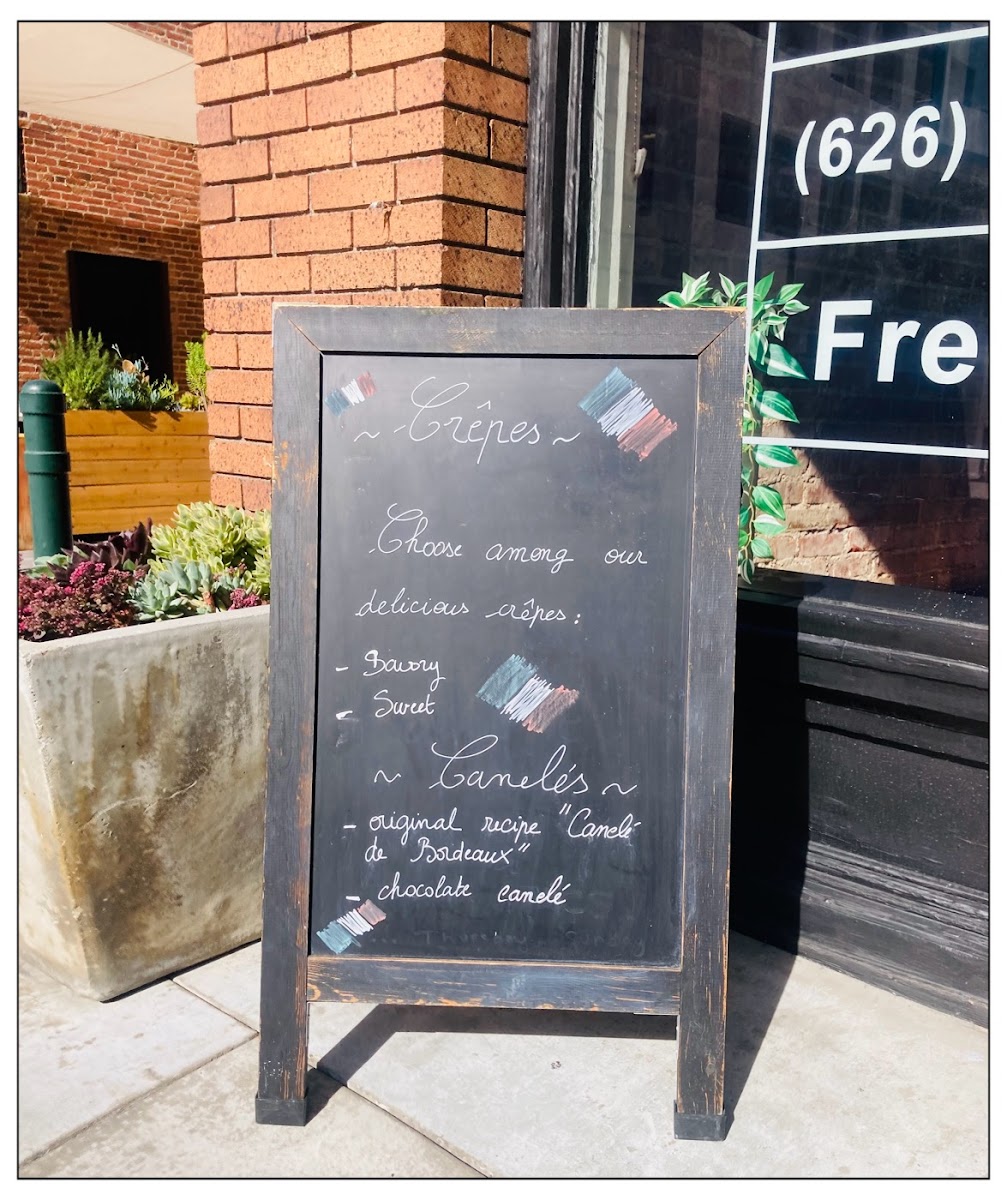 (626)
Fre
~ Crêpes ~
Choose among our
delicious crêpes:
- Savory
- Sweet
~ Canelés ~
- original recipe "Canelé
de Bordeaux"
- chocolate canelé